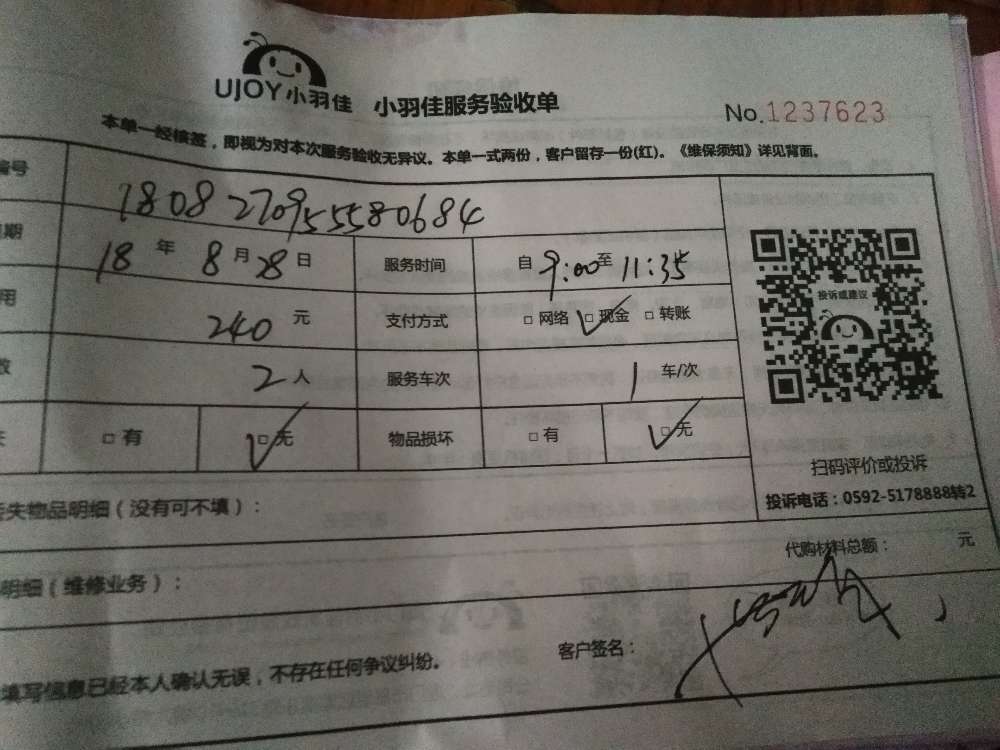 UJOY小羽佳 小羽佳服务验收单 No.1237623
本单一经核签，即视为对本次服务验收无异议。本单一式两份，客户留存一份(红)。《维保须知》详见背面。
编号 1808270955580684
期 18年8月28日 服务时间 自9:00至11:35
用 240元 支付方式 □网络 □现金 □转账
数 2人 服务车次 1车/次
□有 □无 物品损坏 □有 □无
投诉或建议
扫码评价或投诉
投诉电话：0592-5178888转2
失物品明细（没有可不填）：
代购材料总额： 元
明细（维修业务）：
填写信息已经本人确认无误，不存在任何争议纠纷。 客户签名：